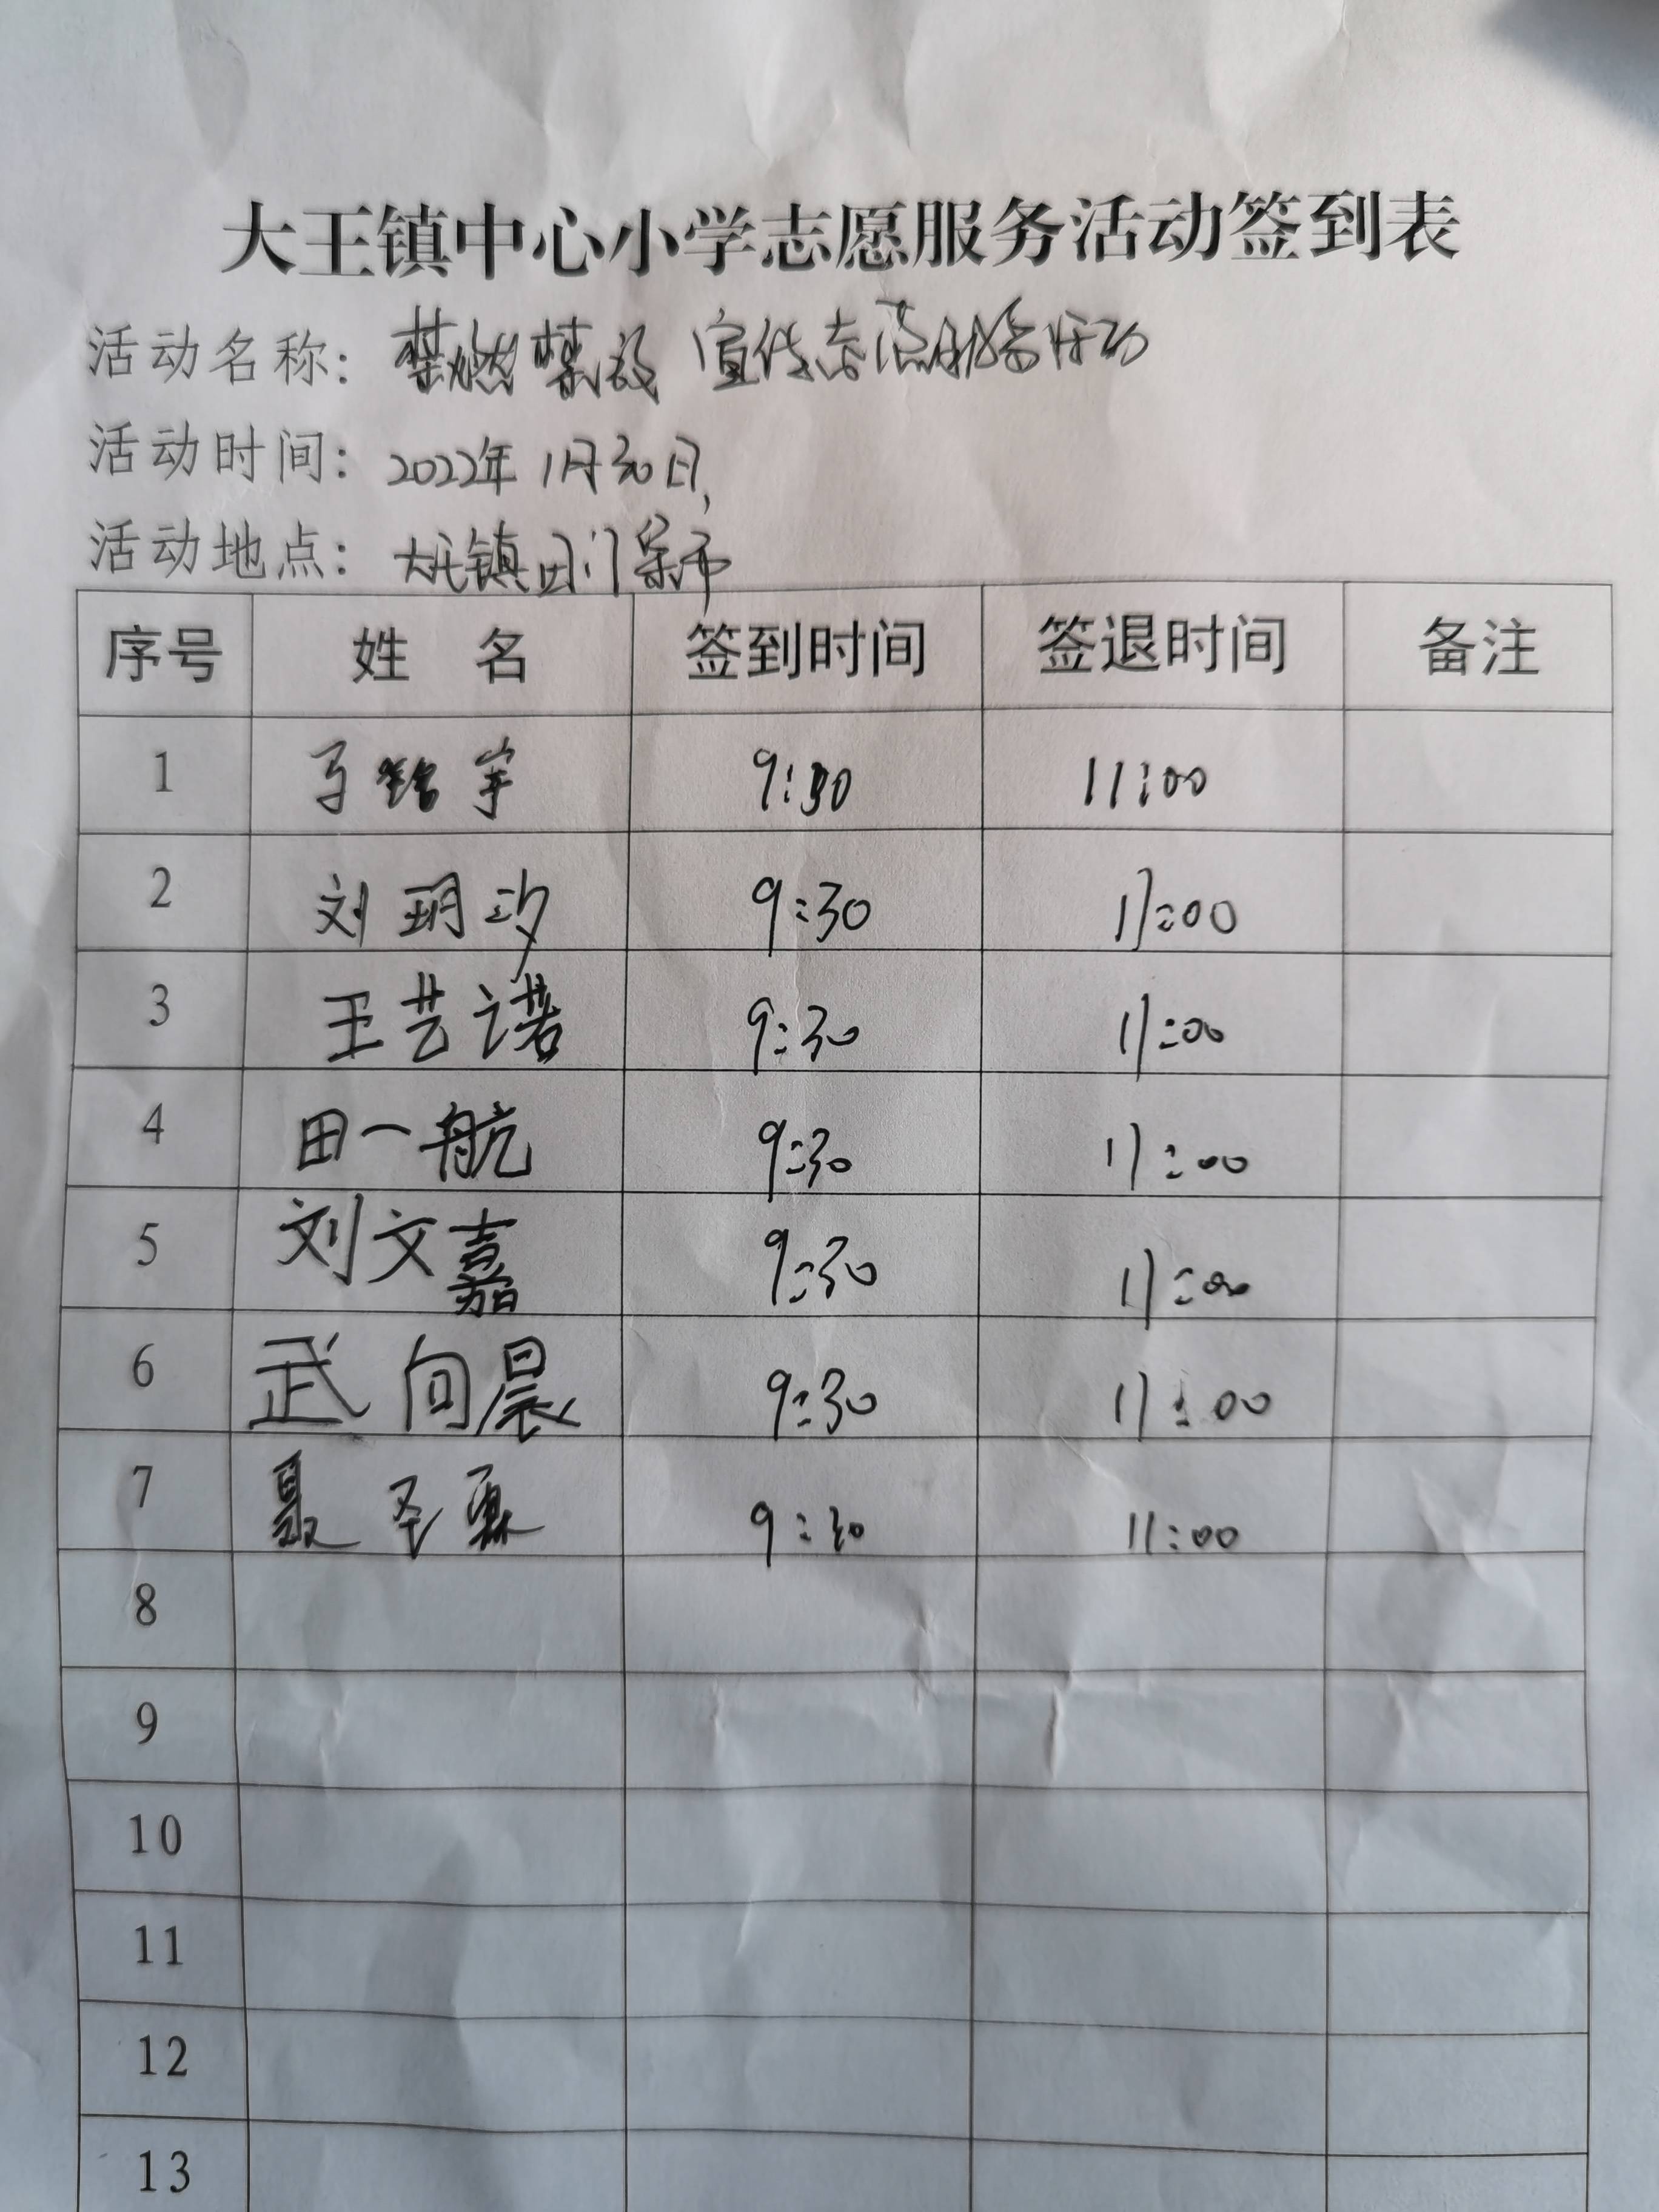 大王镇中心小学志愿服务活动签到表
活动名称：禁燃禁放 宣传志愿服务活动
活动时间：2022年1月30日
活动地点：大王镇田门集市
序号 姓 名 签到时间 签退时间 备注
1 马铭宇 9:30 11:00
2 刘玥汐 9:30 11:00
3 王艺诺 9:30 11:00
4 田一航 9:30 11:00
5 刘文嘉 9:30 11:00
6 武向晨 9:30 11:00
7 聂圣霖 9:30 11:00
8
9
10
11
12
13